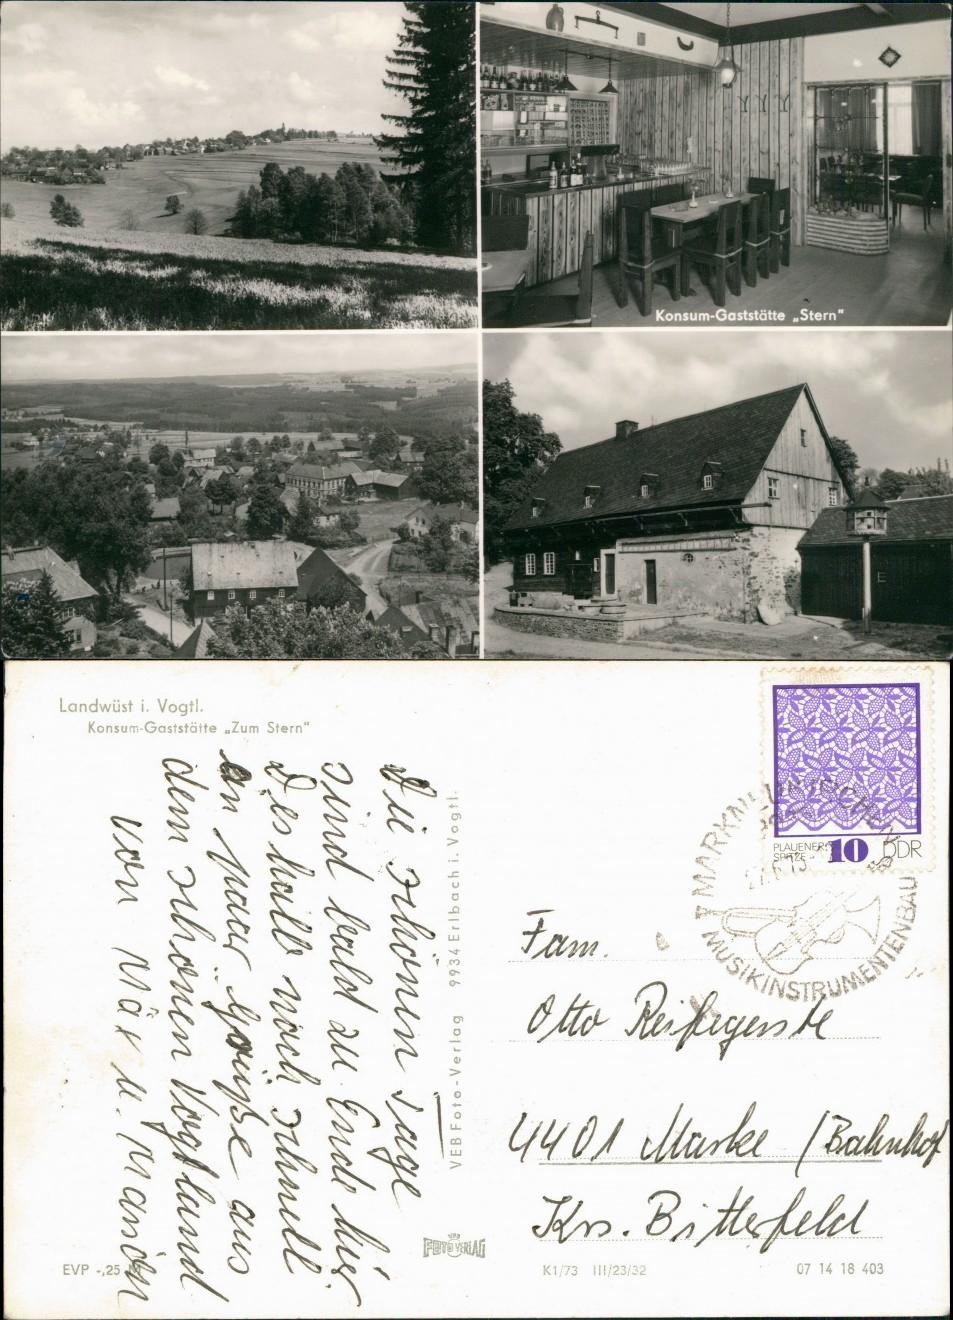 Konsum-Gaststätte „Stern"
Landwüst i. Vogtl.
Konsum-Gaststätte „Zum Stern"
Die schönen Tage
sind bald zu Ende hier
Deshalb noch schnell
ein paar Grüße aus
dem schönen Vogtland
von
VEB Foto-Verlag 9934 Erlbach i. Vogtl.
PLAUENER
SPITZE
10 DDR
MARKNEUKIRCHEN
MUSIKINSTRUMENTENBAU
Fam.
Otto Reifegerste
4401 Marke / Bahnhof
Krs. Bitterfeld
FOTO VERLAG
EVP -,25 M
K1/73 III/23/32
07 14 18 403